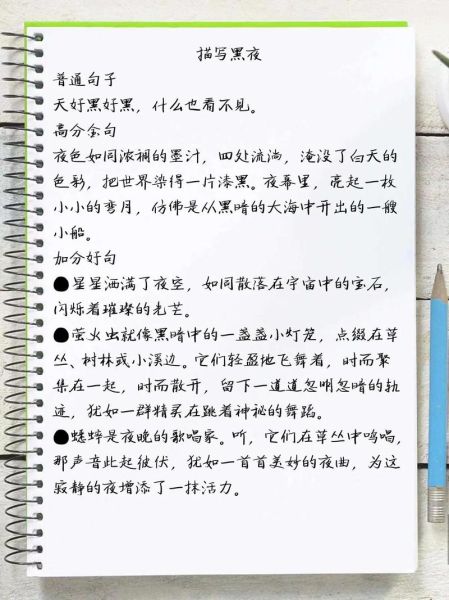 描写黑夜
普通句子
天好黑好黑，什么也看不见。
高分金句
夜色如同浓稠的墨汁，四处流淌，淹没了白天的
色彩，把世界染得一片漆黑。夜幕里，亮起一枚
小小的弯月，仿佛是从黑暗的大海中开出的一艘
小船。
加分好句
●星星洒满了夜空，如同散落在宇宙中的宝石，
闪烁着璀璨的光芒。
●萤火虫就像黑暗中的一盏盏小灯笼，点缀在草
丛、树林或小溪边。它们轻盈地飞舞着，时而聚
集在一起，时而散开，留下一道道忽明忽暗的轨
迹，犹如一群精灵在跳着神秘的舞蹈。
●蟋蟀是夜晚的歌唱家。听，它们在草丛中鸣唱，
那声音此起彼伏，犹如一首首美妙的夜曲，为这
寂静的夜增添了一抹活力。